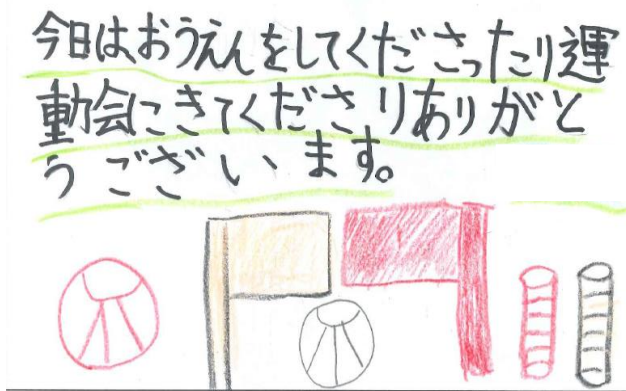 今日は、おうえんをしてくださったり運
動会にきてくださりありがと
うございます。